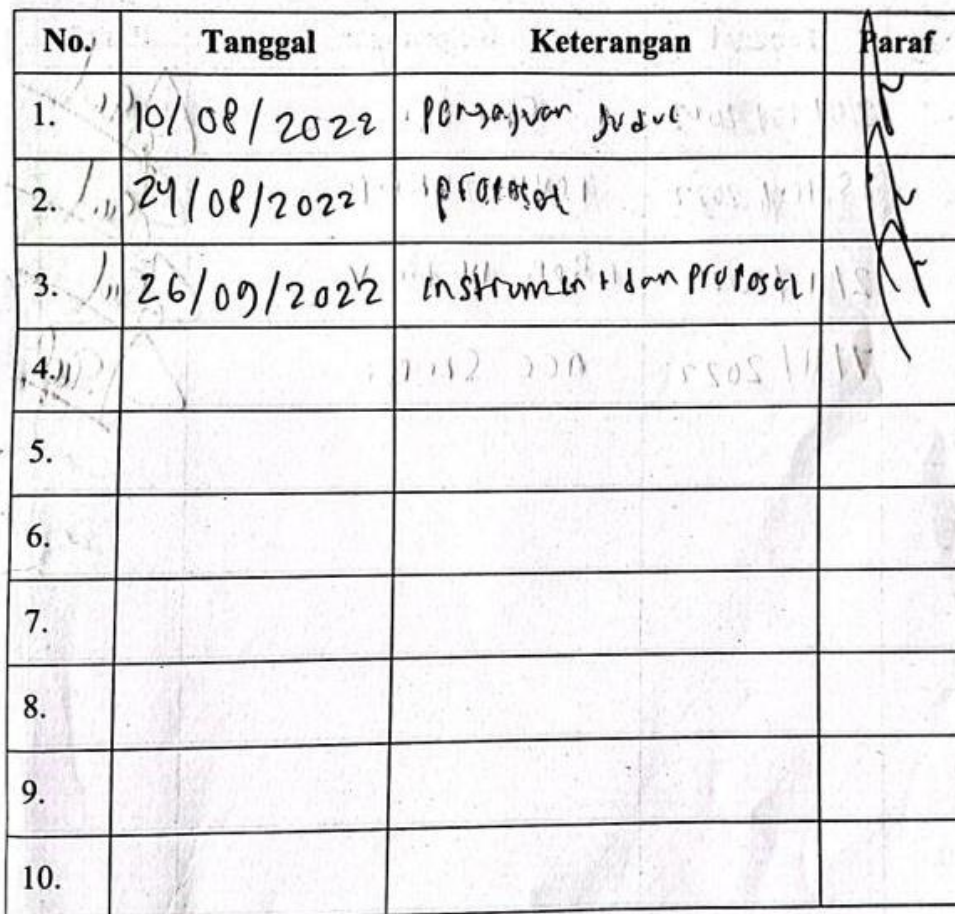 No. Tanggal Keterangan Paraf
1. 10/08/2022 pengajuan judul
2. 24/08/2022 proposal
3. 26/09/2022 instrument dan proposal
4.
5.
6.
7.
8.
9.
10.